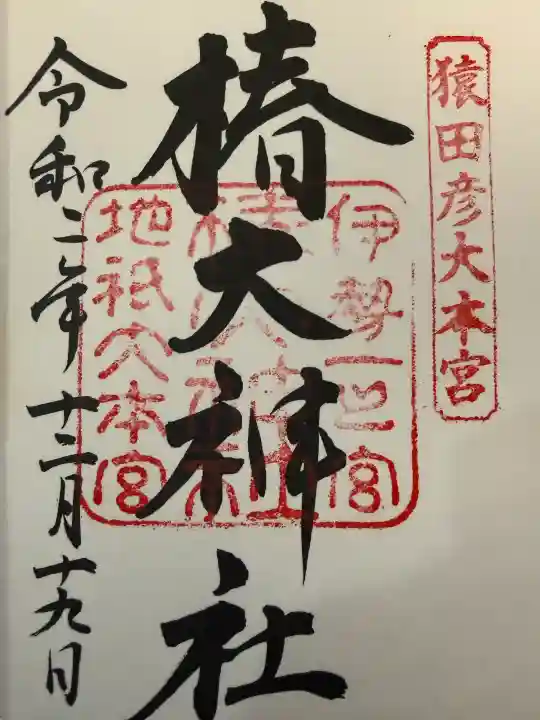 猿田彦大本宮
伊勢一之宮
椿大神社
地祇大本宮
椿大神社
令和二年十二月十九日